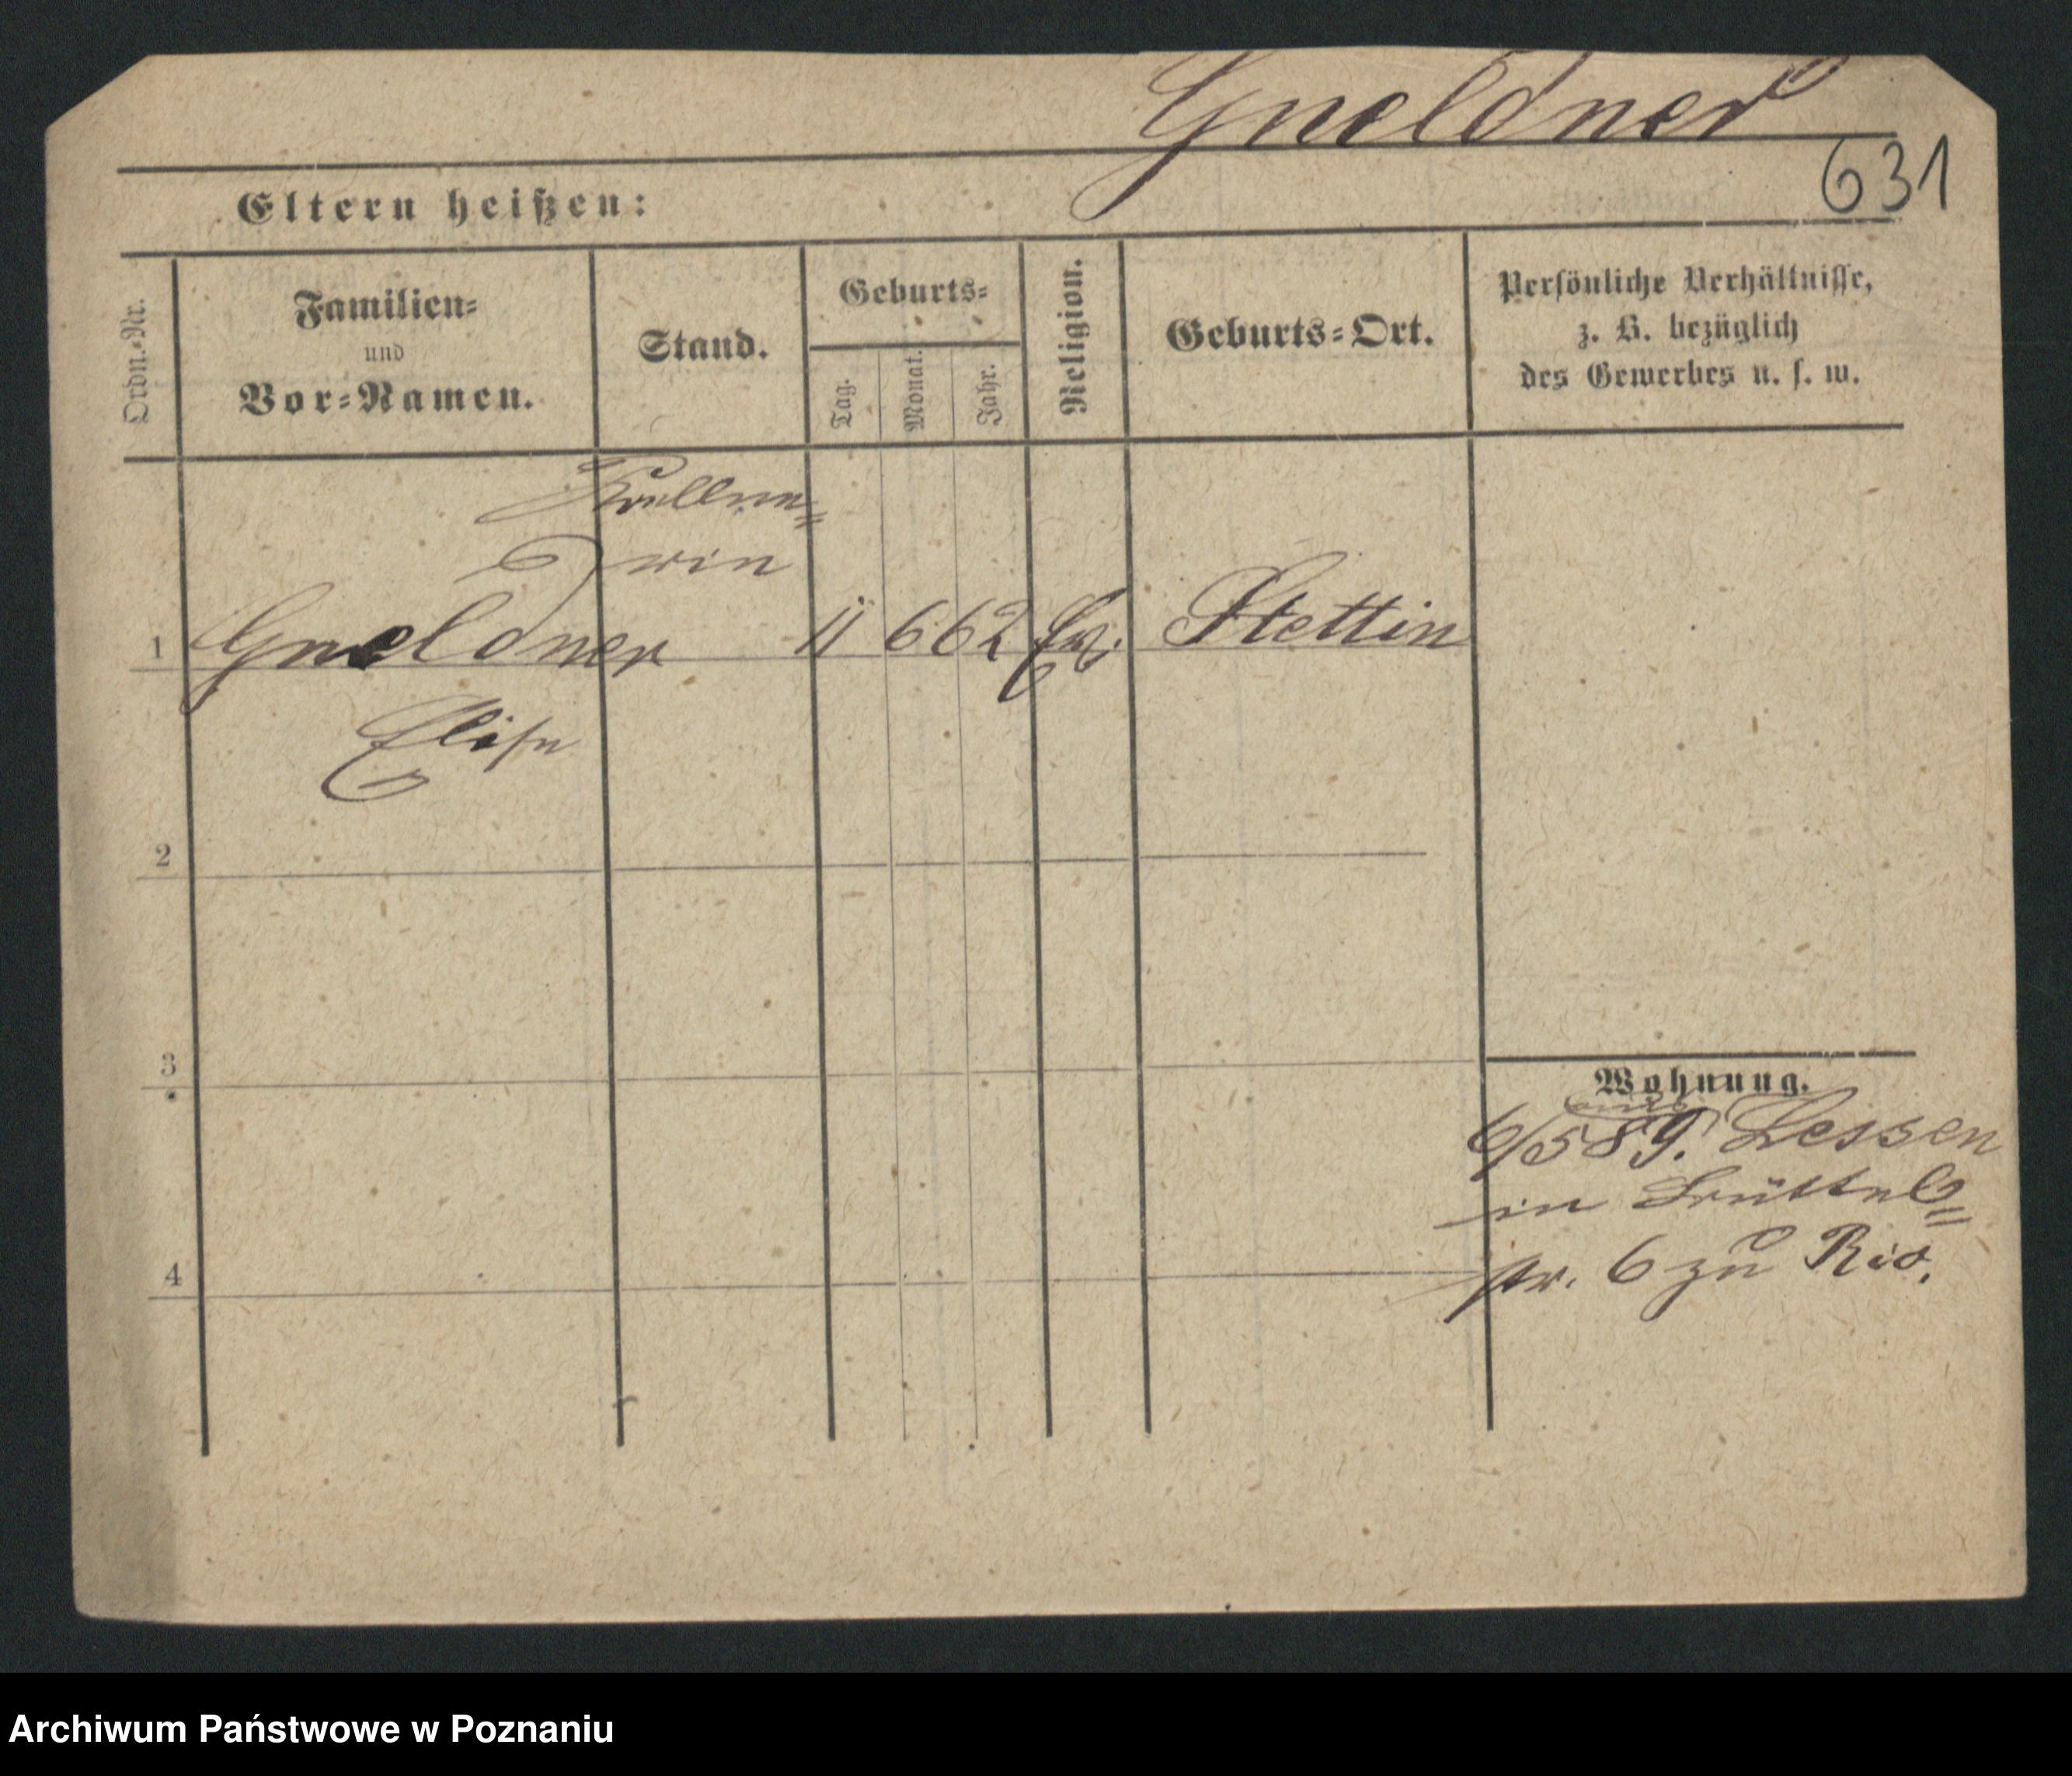 Gneldner
631
Eltern heißen:
Ordn.-Nr.
Familien-
und
Vor-Namen.
Stand.
Geburts-
Tag.
Monat.
Jahr.
Religion.
Geburts-Ort.
Persönliche Verhältnisse,
z. B. bezüglich
des Gewerbes u. s. w.
Kellne=
rin
1 Gneldner 11 6 62 Ev. Stettin
Elise
2
3
4
Wohnung.
6/5 89. Lessen
in
str. 6 zu
Archiwum Państwowe w Poznaniu